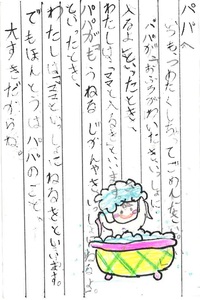 パパへ
いつもつめたくしちゃってごめんなさい。
パパが「おふろがわいたよ、いっしょに
入るよ」といったとき、
わたしは「ママと入る」といいます。
パパが「もうねるじかん
といったとき、
わたしは「ママといっしょにねる」といいます。
でもほんとうはパパのこと…
大すきだからね。